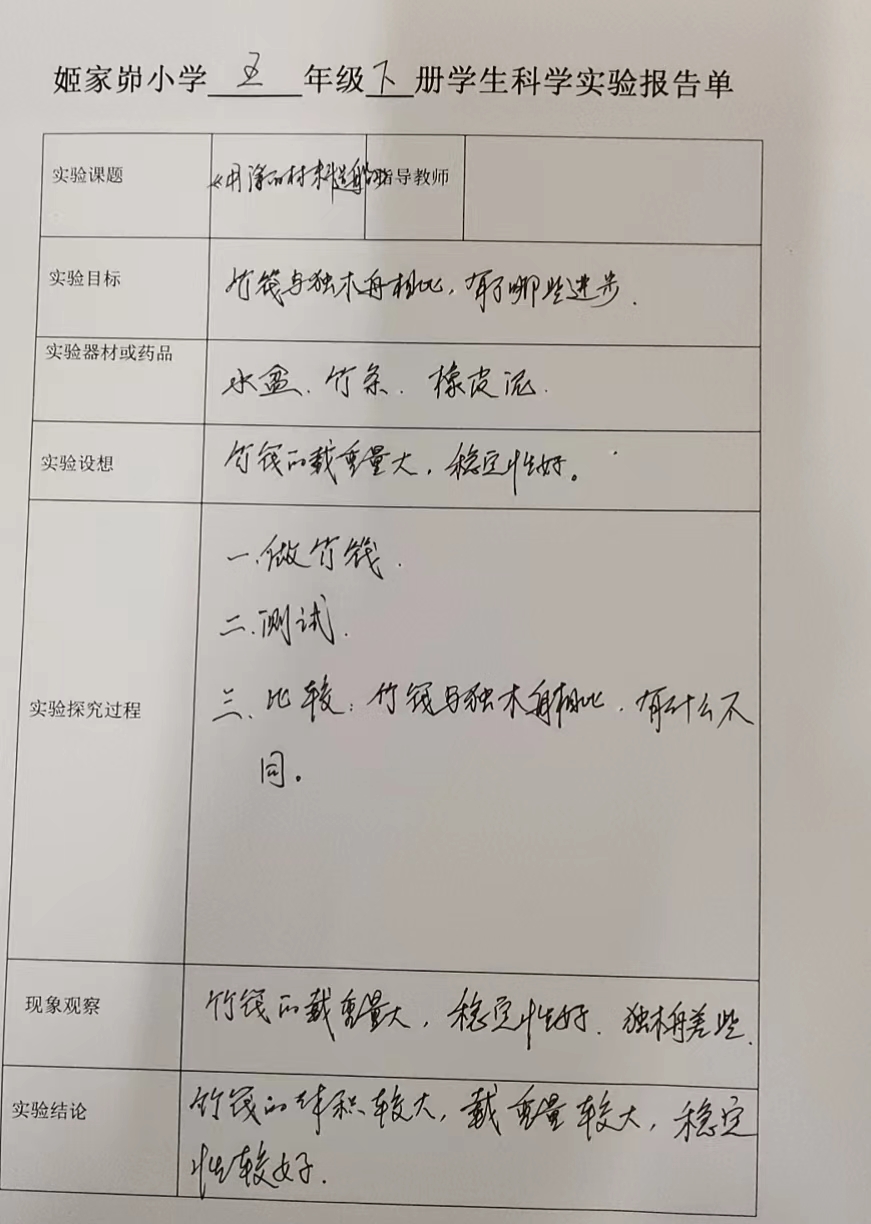 姬家峁小学 五 年级 下 册学生科学实验报告单
实验课题 《用浮的材料造船》 指导教师
实验目标 竹筏与独木舟相比，有了哪些进步.
实验器材或药品 水盆、竹条、橡皮泥.
实验设想 竹筏的载重量大，稳定性好。
一.做竹筏.
二.测试.
实验探究过程 三、比较：竹筏与独木舟相比，有什么不
同。
现象观察 竹筏的载重量大，稳定性好、独木舟差些.
实验结论 竹筏的体积较大，载重量较大，稳定
性较好.